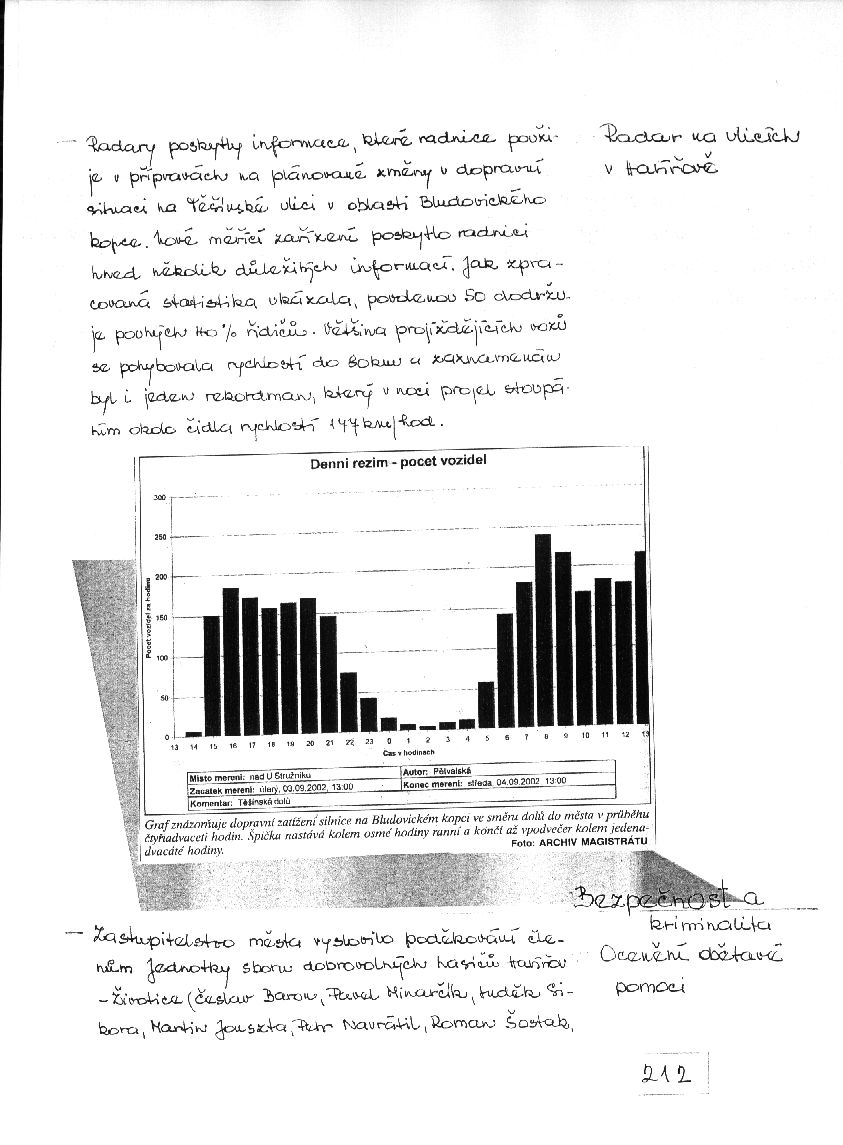 — Radary poskytly informace, které radnice použi-
je v přípravách na plánované změny v dopravní
situaci na Těšínské ulici v oblasti Bludovického
kopce. Nové měřící zařízení poskytlo radnici
hned několik důležitých informací. Jak zpra-
covaná statistika ukázala, povolenou 50 dodržu-
je pouhých 40% řidičů. Většina projíždějících vozů
se pohybovala rychlostí do 80km a zaznamenán
byl i jeden rekordman, který v noci projel stoupá-
ním okolo čidla rychlostí 147km/hod.
Radar na ulicích
v Havířově
Denni rezim - pocet vozidel
Pocet vozidel za hodinu
300
250
200
150
100
50
0
13 14 15 16 17 18 19 20 21 22 23 0 1 2 3 4 5 6 7 8 9 10 11 12 13
Čas v hodinach
Misto mereni: nad U Stružníku
Autor: Pětvalská
Zacatek mereni: úterý, 03.09.2002, 13:00
Konec mereni: středa, 04.09.2002, 13:00
Komentar: Těšínská dolů
Graf znázorňuje dopravní zatížení silnice na Bludovickém kopci ve směru dolů do města v průběhu
čtyřiadvaceti hodin. Špička nastává kolem osmé hodiny ranní a končí až vpodvečer kolem jedena-
dvacáté hodiny.
Foto: ARCHIV MAGISTRÁTU
Bezpečnost a
kriminalita
Ocenění obětavé
pomoci
— Zastupitelstvo města vyslovilo poděkování čle-
nům Jednotky sboru dobrovolných hasičů Havířov
- Životice (Česlav Baron, Pavel Minarčík, Luděk Si-
kora, Martin Jouszta, Petr Navrátil, Roman Šostak,
212